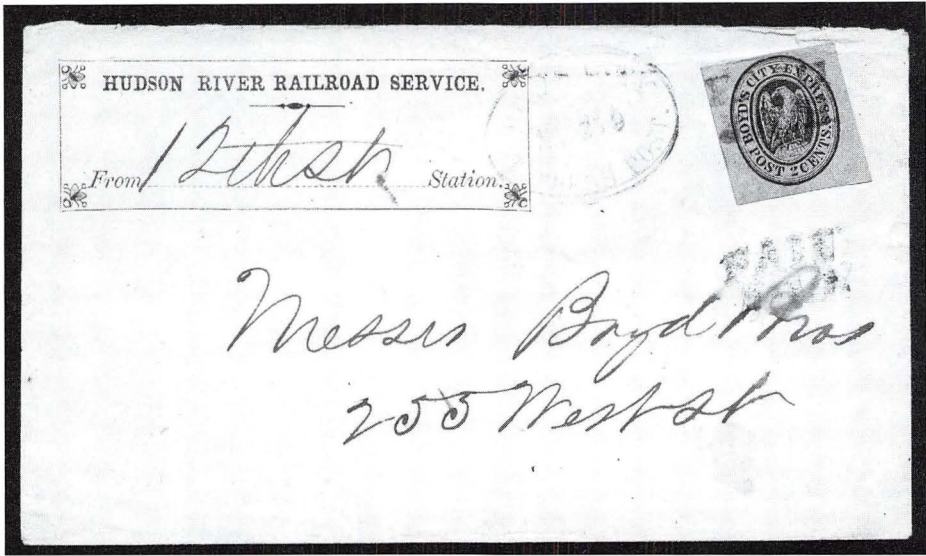 HUDSON RIVER RAILROAD SERVICE.
From 12th St. Station.
BOYD'S CITY EXPRESS
POST 2 CENTS.
PAID
Messrs Boyd Bros
255 West St